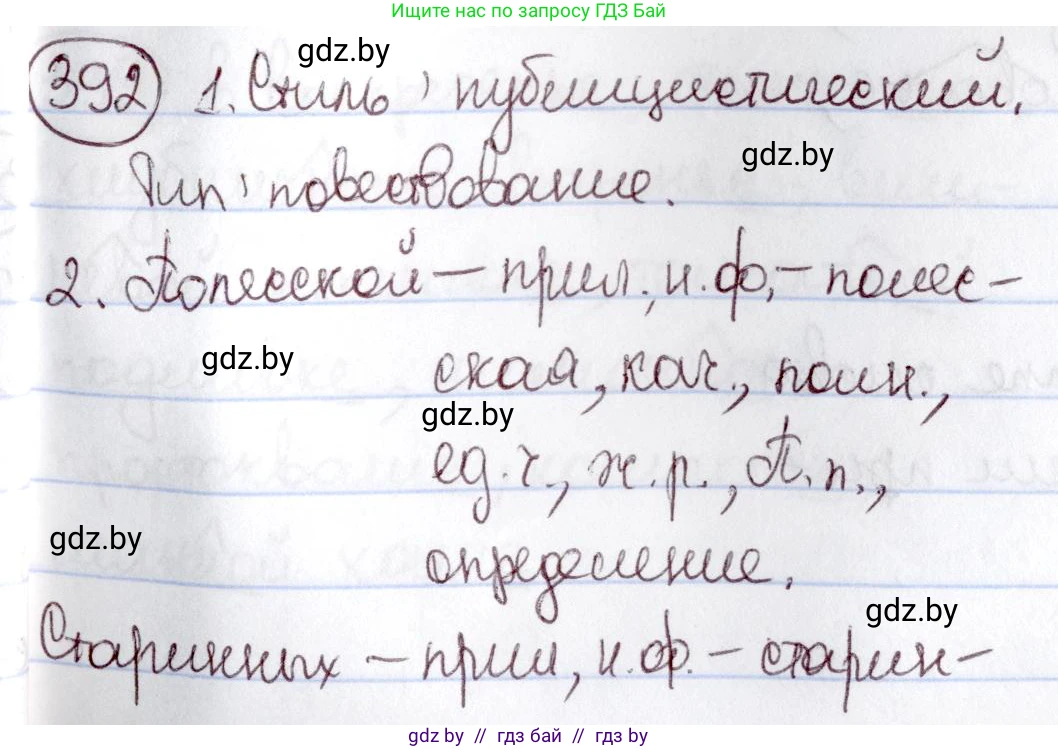 Ищите нас по запросу ГДЗ Бай
gdz.by
392 1. Стиль: публицистический.
gdz.by
Тип: повествование.
2. Полесской — прил., н.ф. — полес-
gdz.by
ская, кач., полн.,
gdz.by
ед.ч., ж.р., П.п.,
gdz.by
определение.
gdz.by
Старинных — прил, н.ф. — старин-
gdz.by // гдз бай // гдз by